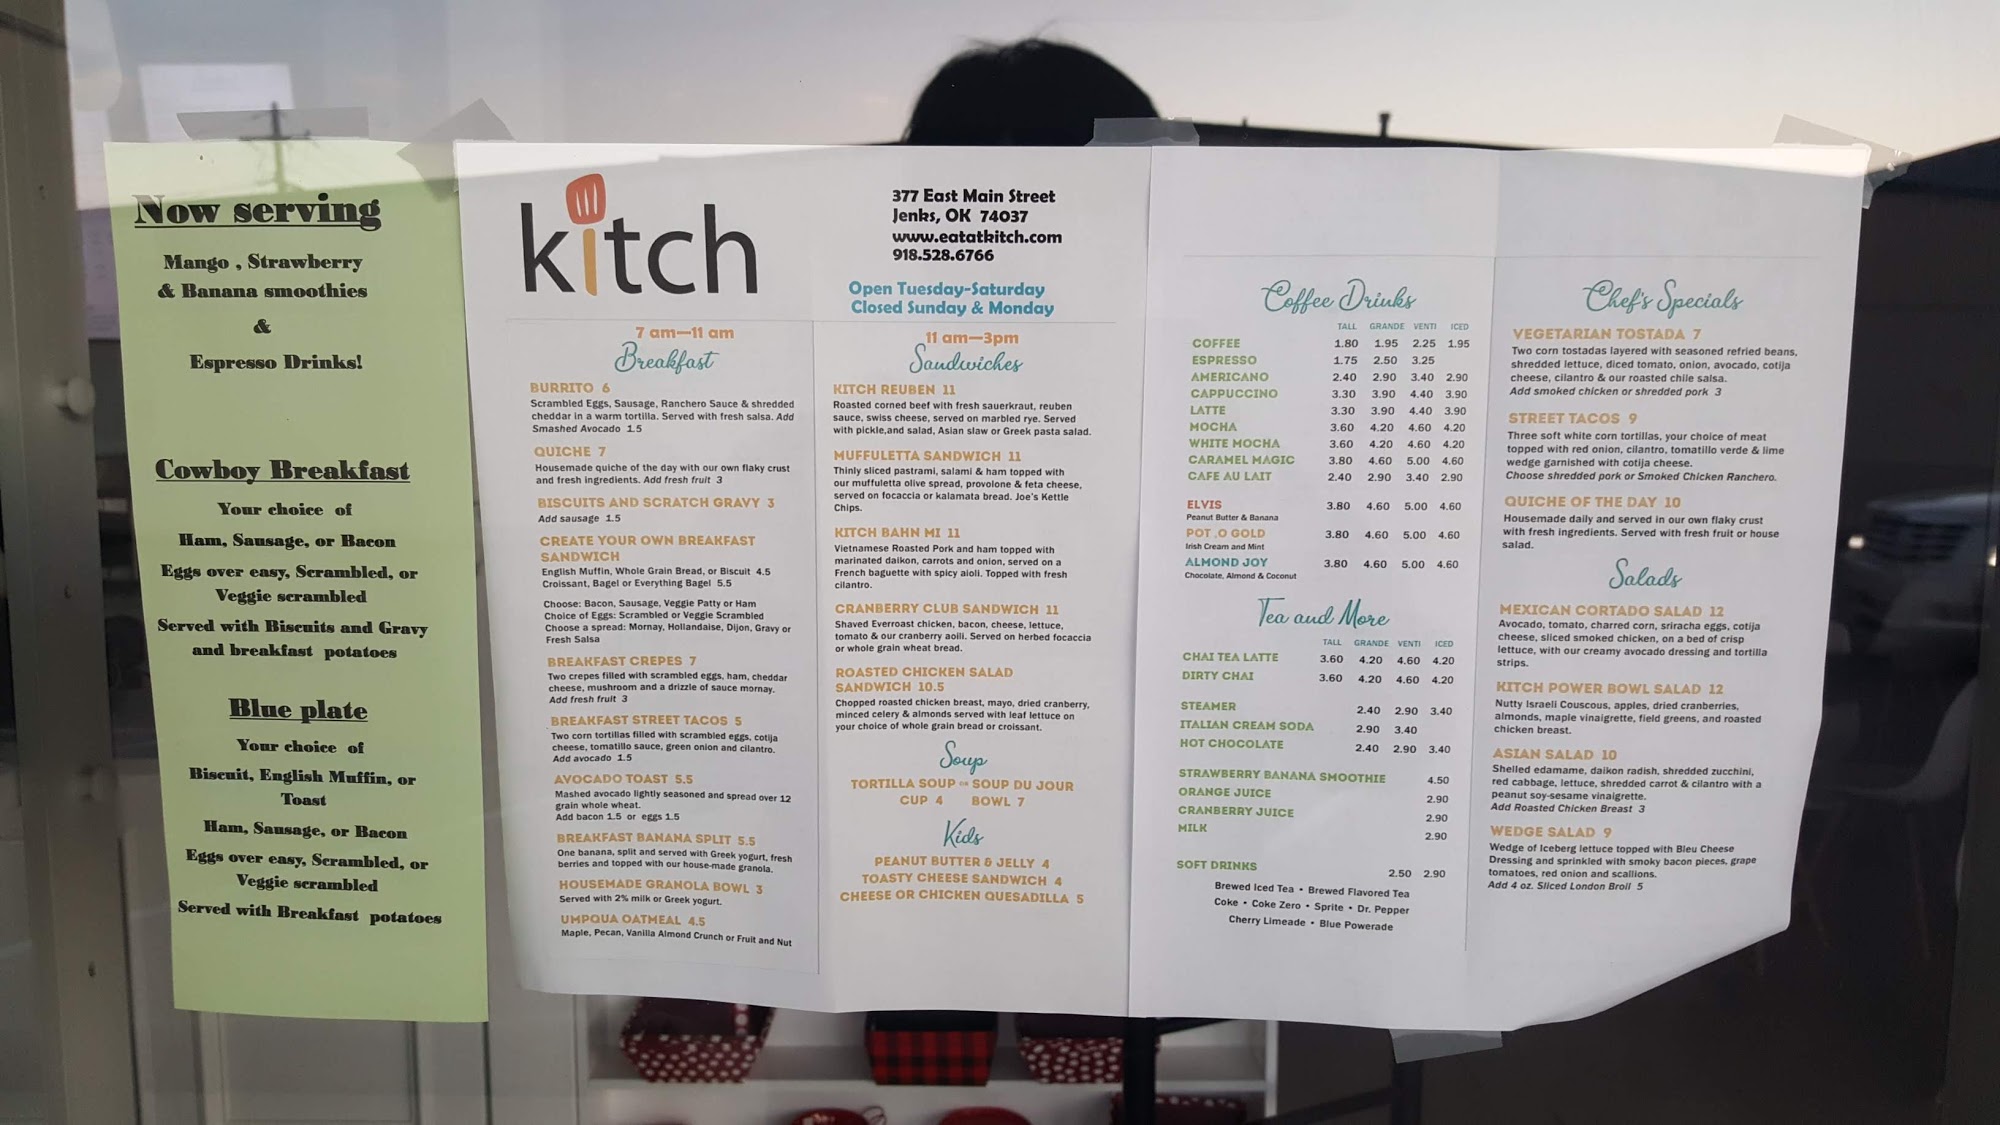 Now serving
Mango , Strawberry
& Banana smoothies
&
Espresso Drinks!
Cowboy Breakfast
Your choice of
Ham, Sausage, or Bacon
Eggs over easy, Scrambled, or
Veggie scrambled
Served with Biscuits and Gravy
and breakfast potatoes
Blue plate
Your choice of
Biscuit, English Muffin, or
Toast
Ham, Sausage, or Bacon
Eggs over easy, Scrambled, or
Veggie scrambled
Served with Breakfast potatoes
kitch
377 East Main Street
Jenks, OK 74037
www.eatatkitch.com
918.528.6766
Open Tuesday-Saturday
Closed Sunday & Monday
7 am—11 am
Breakfast
BURRITO 6
Scrambled Eggs, Sausage, Ranchero Sauce & shredded
cheddar in a warm tortilla. Served with fresh salsa. Add
Smashed Avocado 1.5
QUICHE 7
Housemade quiche of the day with our own flaky crust
and fresh ingredients. Add fresh fruit 3
BISCUITS AND SCRATCH GRAVY 3
Add sausage 1.5
CREATE YOUR OWN BREAKFAST
SANDWICH
English Muffin, Whole Grain Bread, or Biscuit 4.5
Croissant, Bagel or Everything Bagel 5.5
Choose: Bacon, Sausage, Veggie Patty or Ham
Choice of Eggs: Scrambled or Veggie Scrambled
Choose a spread: Mornay, Hollandaise, Dijon, Gravy or
Fresh Salsa
BREAKFAST CREPES 7
Two crepes filled with scrambled eggs, ham, cheddar
cheese, mushroom and a drizzle of sauce mornay.
Add fresh fruit 3
BREAKFAST STREET TACOS 5
Two corn tortillas filled with scrambled eggs, cotija
cheese, tomatillo sauce, green onion and cilantro.
Add avocado 1.5
AVOCADO TOAST 5.5
Mashed avocado lightly seasoned and spread over 12
grain whole wheat.
Add bacon 1.5 or eggs 1.5
BREAKFAST BANANA SPLIT 5.5
One banana, split and served with Greek yogurt, fresh
berries and topped with our house-made granola.
HOUSEMADE GRANOLA BOWL 3
Served with 2% milk or Greek yogurt.
UMPQUA OATMEAL 4.5
Maple, Pecan, Vanilla Almond Crunch or Fruit and Nut
11 am—3pm
Sandwiches
KITCH REUBEN 11
Roasted corned beef with fresh sauerkraut, reuben
sauce, swiss cheese, served on marbled rye. Served
with pickle,and salad, Asian slaw or Greek pasta salad.
MUFFULETTA SANDWICH 11
Thinly sliced pastrami, salami & ham topped with
our muffuletta olive spread, provolone & feta cheese,
served on focaccia or kalamata bread. Joe's Kettle
Chips.
KITCH BAHN MI 11
Vietnamese Roasted Pork and ham topped with
marinated daikon, carrots and onion, served on a
French baguette with spicy aioli. Topped with fresh
cilantro.
CRANBERRY CLUB SANDWICH 11
Shaved Everroast chicken, bacon, cheese, lettuce,
tomato & our cranberry aoili. Served on herbed focaccia
or whole grain wheat bread.
ROASTED CHICKEN SALAD
SANDWICH 10.5
Chopped roasted chicken breast, mayo, dried cranberry,
minced celery & almonds served with leaf lettuce on
your choice of whole grain bread or croissant.
Soup
TORTILLA SOUP OR SOUP DU JOUR
CUP 4 BOWL 7
Kids
PEANUT BUTTER & JELLY 4
TOASTY CHEESE SANDWICH 4
CHEESE OR CHICKEN QUESADILLA 5
Coffee Drinks
TALL GRANDE VENTI ICED
COFFEE 1.80 1.95 2.25 1.95
ESPRESSO 1.75 2.50 3.25
AMERICANO 2.40 2.90 3.40 2.90
CAPPUCCINO 3.30 3.90 4.40 3.90
LATTE 3.30 3.90 4.40 3.90
MOCHA 3.60 4.20 4.60 4.20
WHITE MOCHA 3.60 4.20 4.60 4.20
CARAMEL MAGIC 3.80 4.60 5.00 4.60
CAFE AU LAIT 2.40 2.90 3.40 2.90
ELVIS 3.80 4.60 5.00 4.60
Peanut Butter & Banana
POT .O GOLD 3.80 4.60 5.00 4.60
Irish Cream and Mint
ALMOND JOY 3.80 4.60 5.00 4.60
Chocolate, Almond & Coconut
Tea and More
TALL GRANDE VENTI ICED
CHAI TEA LATTE 3.60 4.20 4.60 4.20
DIRTY CHAI 3.60 4.20 4.60 4.20
STEAMER 2.40 2.90 3.40
ITALIAN CREAM SODA 2.90 3.40
HOT CHOCOLATE 2.40 2.90 3.40
STRAWBERRY BANANA SMOOTHIE 4.50
ORANGE JUICE 2.90
CRANBERRY JUICE 2.90
MILK 2.90
SOFT DRINKS 2.50 2.90
Brewed Iced Tea • Brewed Flavored Tea
Coke • Coke Zero • Sprite • Dr. Pepper
Cherry Limeade • Blue Powerade
Chef's Specials
VEGETARIAN TOSTADA 7
Two corn tostadas layered with seasoned refried beans,
shredded lettuce, diced tomato, onion, avocado, cotija
cheese, cilantro & our roasted chile salsa.
Add smoked chicken or shredded pork 3
STREET TACOS 9
Three soft white corn tortillas, your choice of meat
topped with red onion, cilantro, tomatillo verde & lime
wedge garnished with cotija cheese.
Choose shredded pork or Smoked Chicken Ranchero.
QUICHE OF THE DAY 10
Housemade daily and served in our own flaky crust
with fresh ingredients. Served with fresh fruit or house
salad.
Salads
MEXICAN CORTADO SALAD 12
Avocado, tomato, charred corn, sriracha eggs, cotija
cheese, sliced smoked chicken, on a bed of crisp
lettuce, with our creamy avocado dressing and tortilla
strips.
KITCH POWER BOWL SALAD 12
Nutty Israeli Couscous, apples, dried cranberries,
almonds, maple vinaigrette, field greens, and roasted
chicken breast.
ASIAN SALAD 10
Shelled edamame, daikon radish, shredded zucchini,
red cabbage, lettuce, shredded carrot & cilantro with a
peanut soy-sesame vinaigrette.
Add Roasted Chicken Breast 3
WEDGE SALAD 9
Wedge of Iceberg lettuce topped with Bleu Cheese
Dressing and sprinkled with smoky bacon pieces, grape
tomatoes, red onion and scallions.
Add 4 oz. Sliced London Broil 5